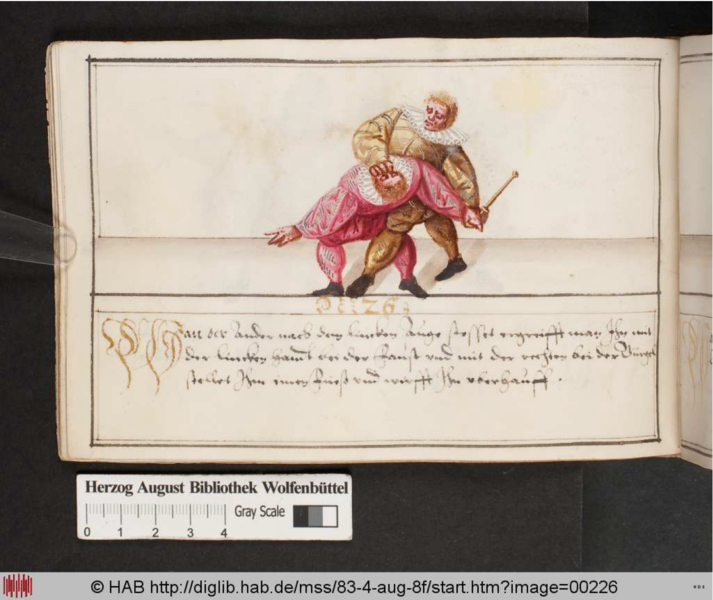 N: 26:
Wan der Ander nach dem lincken Auge stosset ergreifft man Ihn mit
der lincken handt bei der Faust vnd mit der rechten bei der Gurgel
stellet Ihm einen Fueß vnd wirfft Ihn vberhauff.
Herzog August Bibliothek Wolfenbüttel
0 1 2 3 4 Gray Scale
© HAB http://diglib.hab.de/mss/83-4-aug-8f/start.htm?image=00226